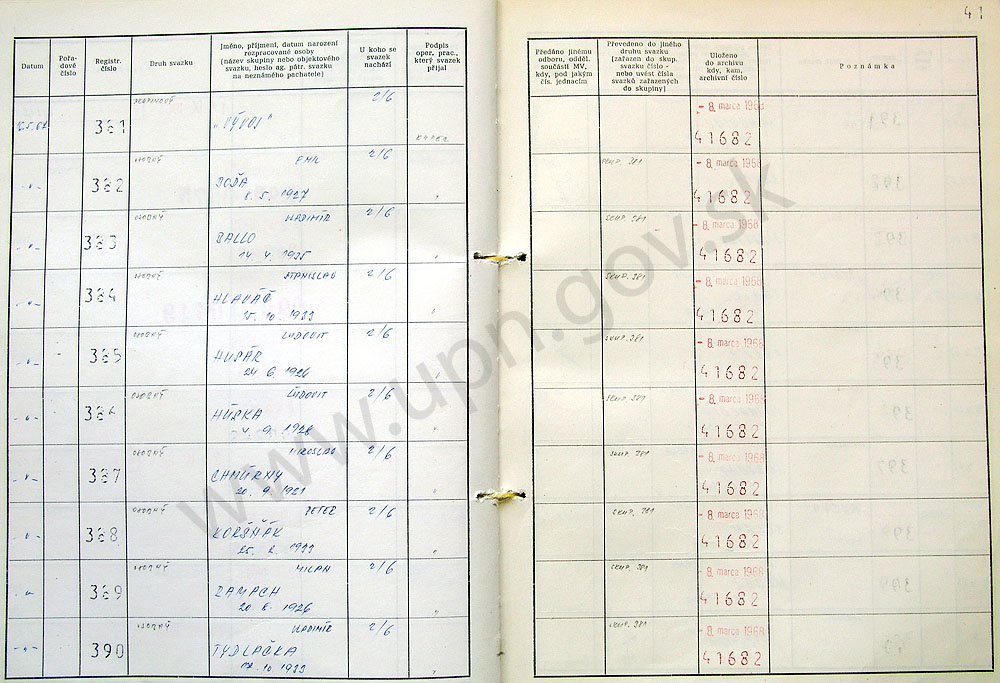 41
Datum
Pořa-
dové
číslo
Registr.
číslo
Druh svazku
Jméno, příjmení, datum narození
rozpracované osoby
(název skupiny nebo objektového
svazku, heslo ag. pátr. svazku
na neznámého pachatele)
U koho se
svazek
nachází
Podpis
oper. prac.,
který svazek
přijal
Předáno jinému
odboru, odděl.
součásti MV,
kdy, pod jakým
čís. jednacím
Převedeno do jiného
druhu svazku
(zařazen do skup.
svazku číslo -
nebo uvést čísla
svazků zařazených
do skupiny)
Uloženo
do archivu
kdy, kam,
archivní číslo
Poznámka
381
SKUPINOVÝ
2/6
- 8. marca 1968
41682
-"-
382
OSOBNÝ
EMIL
1927
2/6
"
SKUP. 381
- 8. marca 1968
41682
-"-
383
OSOBNÝ
VLADIMÍR
BALLO
2/6
"
SKUP. 381
- 8. marca 1968
41682
-"-
384
OSOBNÝ
STANISLAV
HLAVÁČ
15. 10. 1933
2/6
"
SKUP. 381
- 8. marca 1968
41682
-"-
385
OSOBNÝ
ĽUDOVIT
HUSÁR
24. 6. 1926
2/6
"
SKUP. 381
- 8. marca 1968
41682
-"-
386
OSOBNÝ
ĽUDOVIT
4. 9. 1928
2/6
"
SKUP. 381
- 8. marca 1968
41682
-"-
387
OSOBNÝ
MIROSLAV
CHMÚRNY
20. 9. 1931
2/6
"
SKUP. 381
- 8. marca 1968
41682
-"-
388
OSOBNÝ
PETER
2/6
"
SKUP. 381
- 8. marca 1968
41682
-"-
389
OSOBNÝ
MILAN
ZAMPACH
1926
2/6
"
SKUP. 381
- 8. marca 1968
41682
-"-
390
OSOBNÝ
VLADIMÍR
TYDLAČKA
10. 1933
2/6
"
SKUP. 381
- 8. marca 1968
41682
www.upn.gov.sk